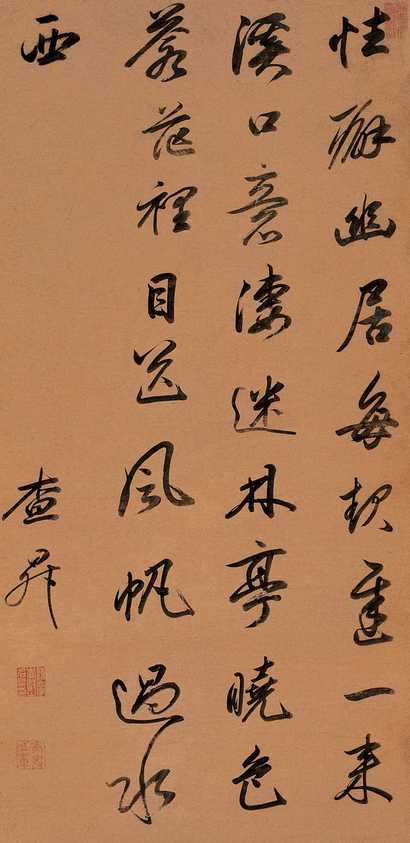 性癖幽居每一来
溪口意淒迷林亭曉色
蓼花裡目送風帆過水
西
查昇